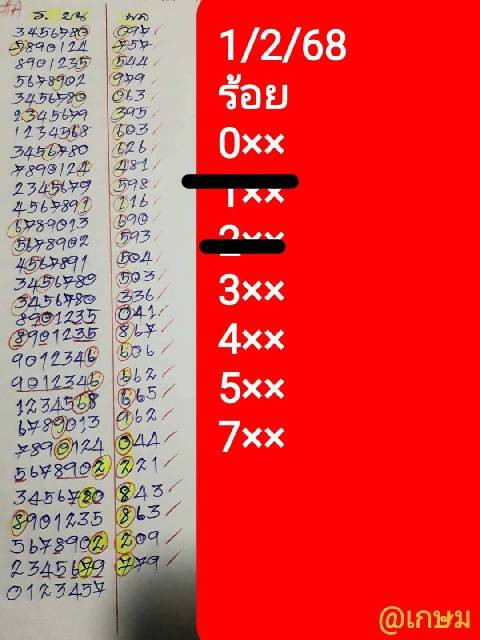 ร. บน ผล
3456780 097
7890124 757
8901235 544
5678902 979
3456780 063
2345679 395
1234568 603
3456780 626
7890124 481
2345679 598
4567891 116
6789013 690
5678902 593
4567891 504
3456780 503
3456780 336
8901235 041
8901235 867
9012346 606
9012346 662
1234568 665
6789013 962
7890124 044
5678902 221
3456780 843
8901235 863
5678902 209
2345679 779
0123457
1/2/68
ร้อย
0××
1××
2××
3××
4××
5××
7××
@เกษม